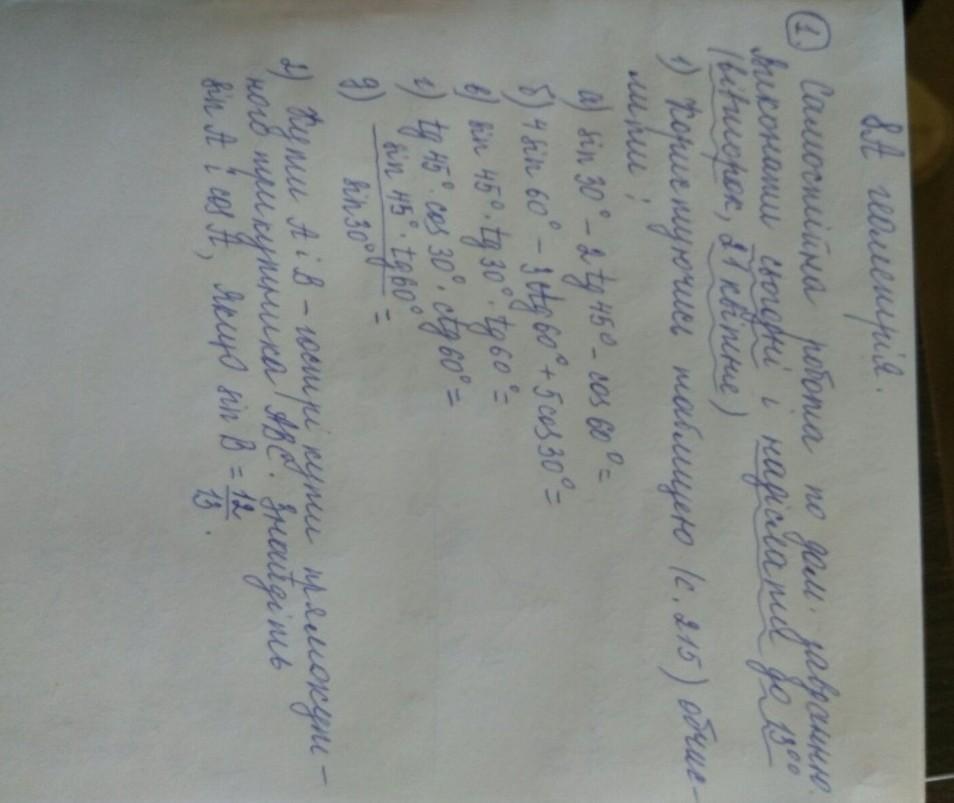 8А геометрія.
① Самостійна робота по дом. завданню.
Виконати сьогодні і надіслати до 13⁰⁰
(вівторок, 21 квітня)
1) Користуючись таблицею (с. 215) обчис-
лити:
а) sin 30° - 2 tg 45° - cos 60° =
б) 4 sin 60° - 3 tg 60° + 5 cos 30° =
в) sin 45° · tg 30° · tg 60° =
г) tg 45° · cos 30° · ctg 60° =
д) sin 45° · tg 60°
sin 30° =
2) Кути А і В - гострі кути прямокут-
ного трикутника АВС. Знайдіть
sin A і cos A, якщо sin B = 12/13.